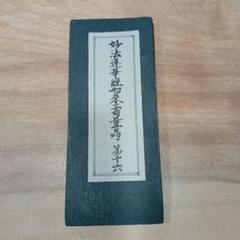 妙法蓮華経如来壽量品・第十六